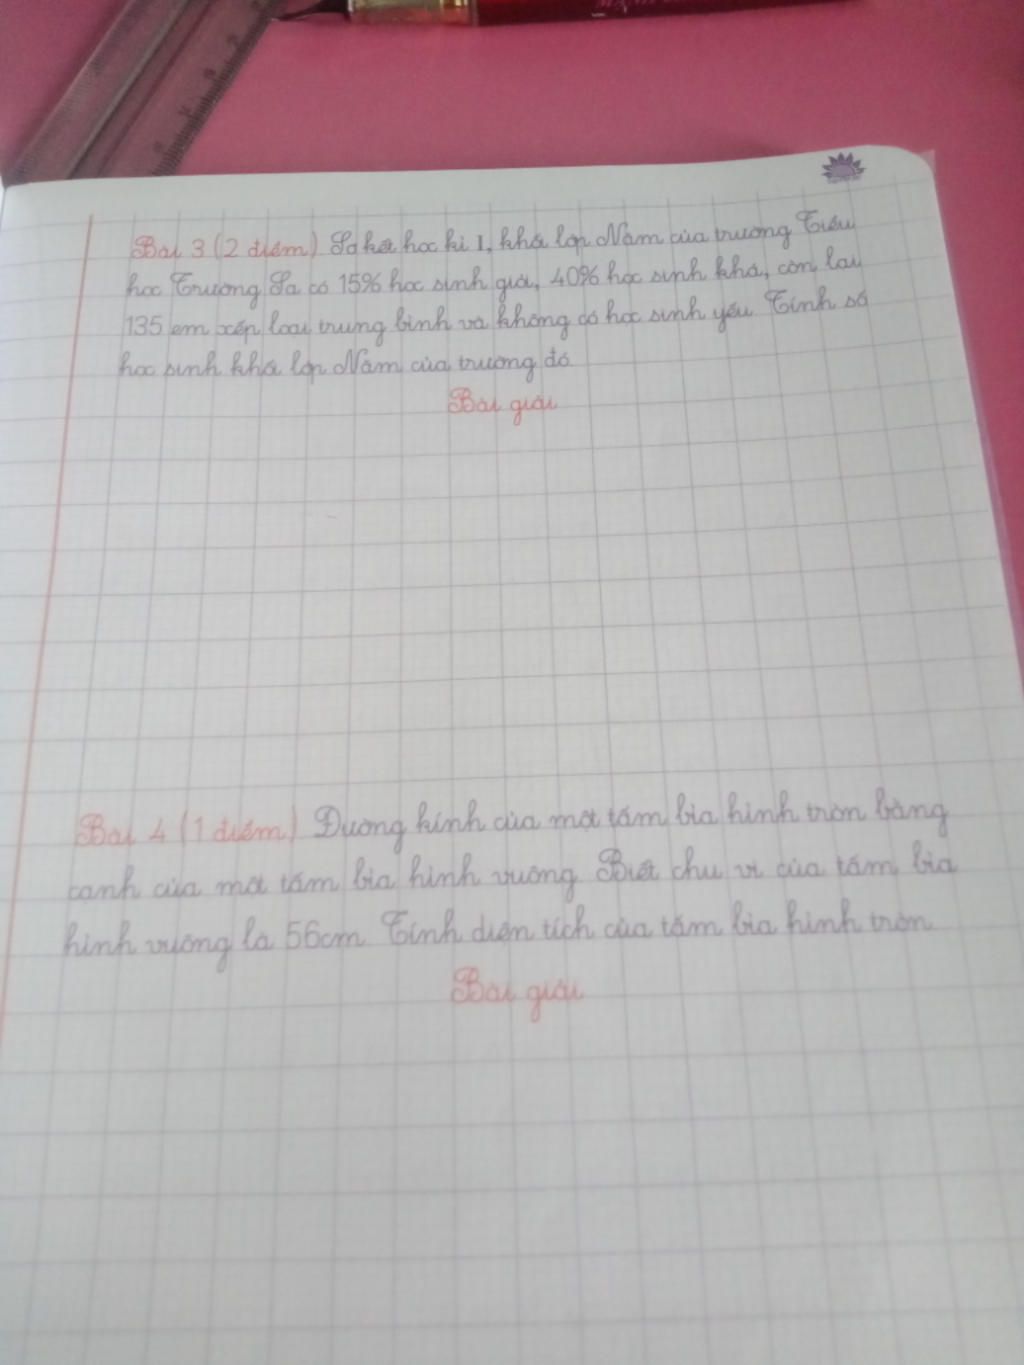 Bài 3 (2 điểm) Sơ kết học kì I, khối lớp Năm của trường Tiểu
học Trường Sa có 15% học sinh giỏi, 40% học sinh khá, còn lại
135 em xếp loại trung bình và không có học sinh yếu. Tính số
học sinh khối lớp Năm của trường đó.
Bài giải
Bài 4 (1 điểm) Đường kính của một tấm bìa hình tròn bằng
cạnh của một tấm bìa hình vuông. Biết chu vi của tấm bìa
hình vuông là 56cm. Tính diện tích của tấm bìa hình tròn.
Bài giải